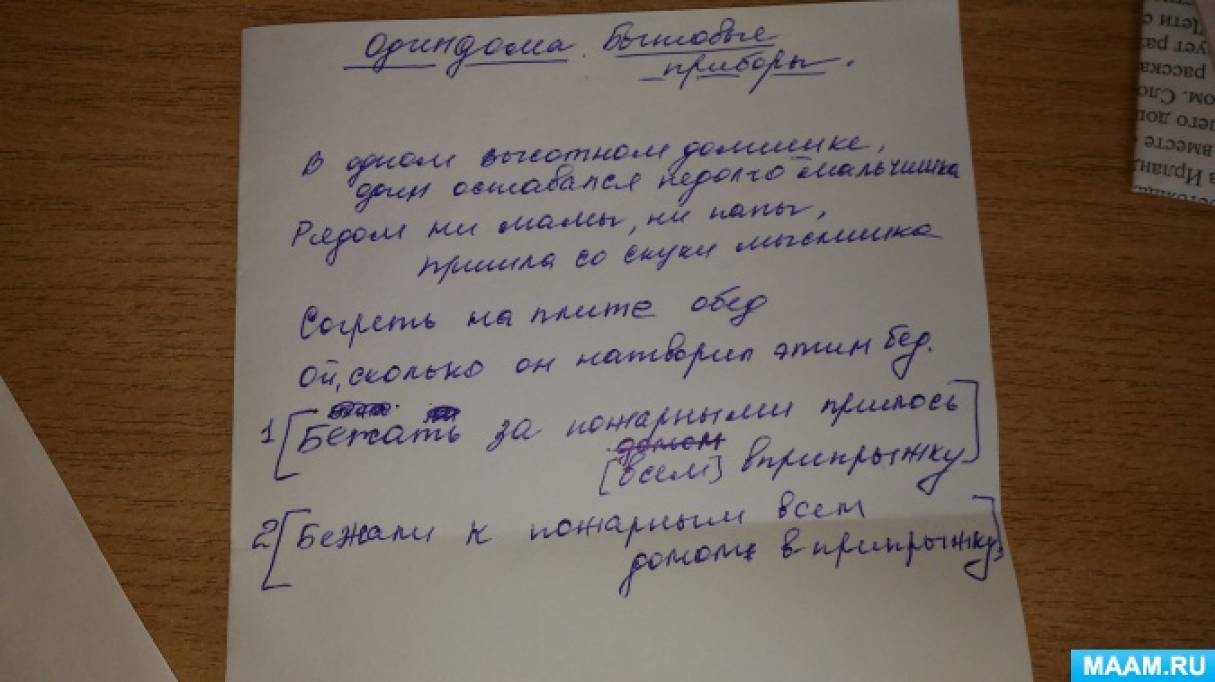 Один дома. Бытовые
приборы.
В одном высотном домишке,
один оставался недолго мальчишка
Рядом ни мамы, ни папы,
пришла со скуки мыслишка
Согреть на плите обед
Ой, сколько он натворил этим бед.
1 [Бежать за пожарными пришлось
домом
[всем] вприпрыжку]
2 [Бежали к пожарным всем
домом вприпрыжку]
Дети с
ует раз
расска
ом. Сло
его дош
вместе
в Ирлан
MAAM.RU